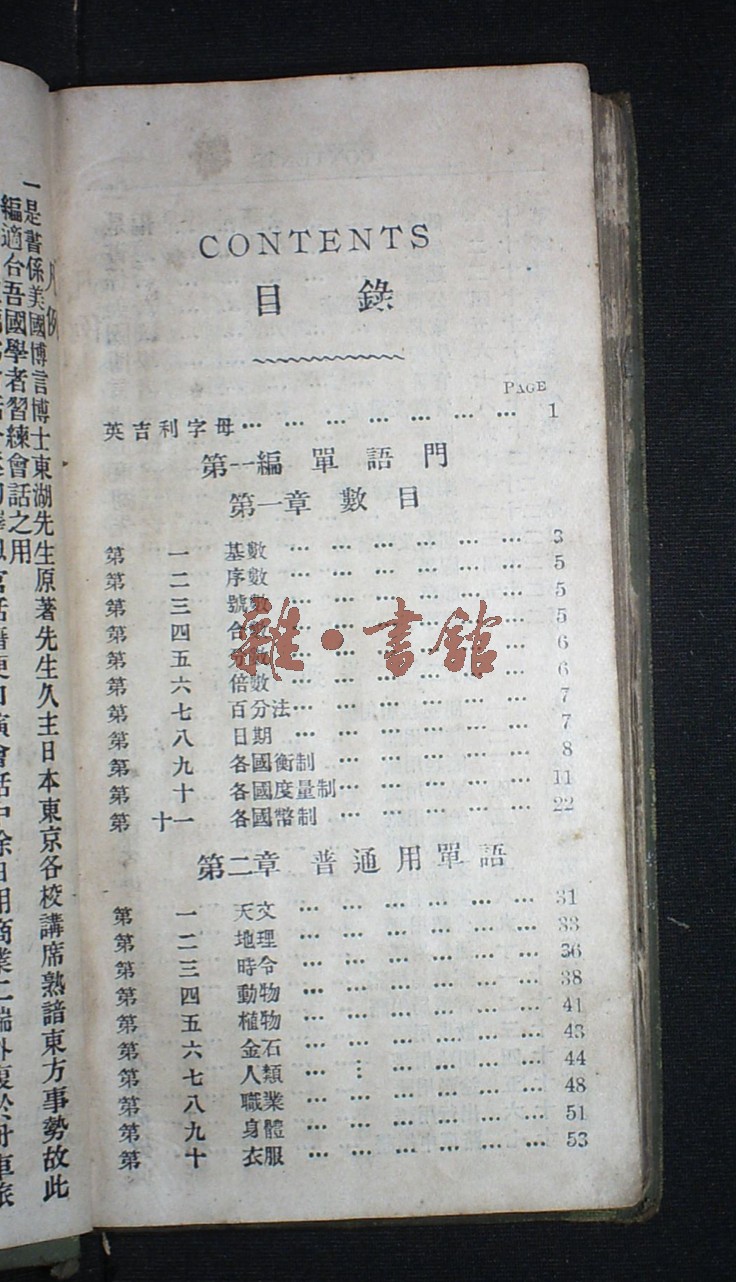 CONTENTS
目錄
PAGE
英吉利字母… … … … … … … 1
第一編 單語門
第一章 數目
第一 基數 … … … … … … 3
第二 序數 … … … … … … 5
第三 號數 … … … … … … 5
第四 合數 … … … … … … 5
第五 分數 … … … … … … 6
第六 倍數 … … … … … … 6
第七 百分法 … … … … … … 7
第八 日期 … … … … … … 7
第九 各國衡制 … … … … … 8
第十 各國度量制… … … … … 11
第十一 各國幣制 … … … … … 22
第二章 普通用單語
第一 天文 … … … … … … 31
第二 地理 … … … … … … 33
第三 時令 … … … … … … 36
第四 動物 … … … … … … 38
第五 植物 … … … … … … 41
第六 金石 … … … … … … 43
第七 人類 … … … … … … 44
第八 職業 … … … … … … 48
第九 身體 … … … … … … 51
第十 衣服 … … … … … … 53
雜·書館
凡例
一是書係美國博言博士東湖先生原著先生久主日本東京各校講席熟諳東方事勢故此
編適合吾國學者習練會話之用